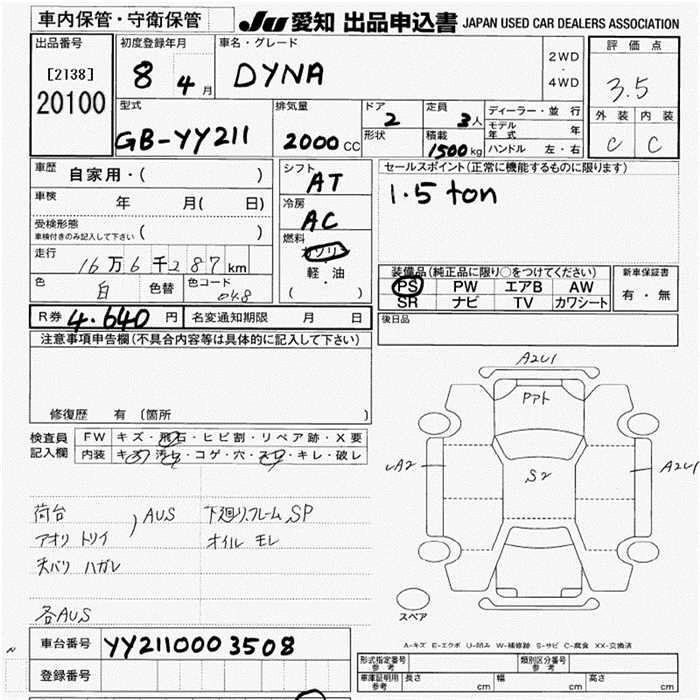 車内保管・守衛保管
JU 愛知 出品申込書 JAPAN USED CAR DEALERS ASSOCIATION
出品番号
[2138]
20100
初度登録年月
8 4月
車名・グレード
DYNA
2WD
・
4WD
評価点
3.5
外装 内装
C C
型式
GB-YY211
排気量
2000 CC
ドア
2
形状
定員
3人
積載
1500kg
ディーラー・並行
モデル年式 年
ハンドル 左・右
車歴
自家用・( )
車検 年 月( 日)
受検形態
車検付きのみ記入して下さい ( )
走行
16万6千287km
色
白
色替
色コード
048
シフト
AT
冷房
AC
燃料
ガソリン
軽・油
( )
セールスポイント(正常に機能するものに限ります)
1.5 ton
装備品(純正品に限り○をつけてください)
PS PW エアB AW
SR ナビ TV カワシート
新車保証書
有・無
R券 4.640円
名変通知期限 月 日
後日品
注意事項申告欄(不具合内容等は具体的に記入して下さい)
修復歴 有 (箇所 )
検査員記入欄
FW キズ・飛石・ヒビ割・リペア跡・X要
内装 キズ・汚れ・コゲ・穴・スレ・キレ・破レ
荷台
アオリ トリイ ) AUS
天バリ ハガレ
各AUS
下廻り,フレーム SP
オイル モレ
A2U1
S2
A2
A2U1
スペア
A-キズ E-エクボ U-凹み W-補修跡 S-サビ C-腐食 XX-交換済
車台番号 YY2110003508
登録番号
形式指定番号 参考
類別区分番号 参考
車庫証明用 参考
長さ cm 幅 cm 高さ cm